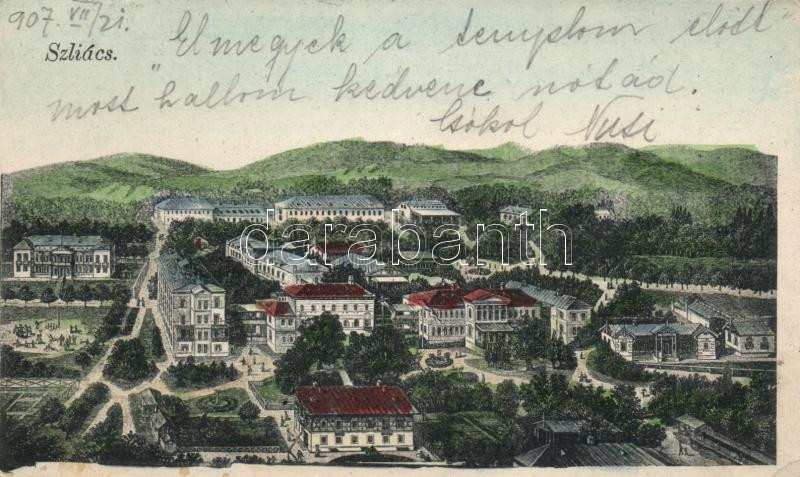 907. VII/21.
Szliács.
"Elmegyek a templom előtt"
most hallom kedvenc nótád.
Csókol Nusi
darabanth